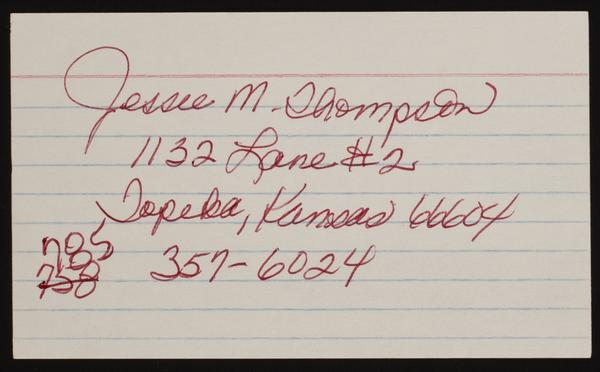 Jessie M. Thompson
1132 Lane #2
Topeka, Kansas 66604
785
758 357-6024